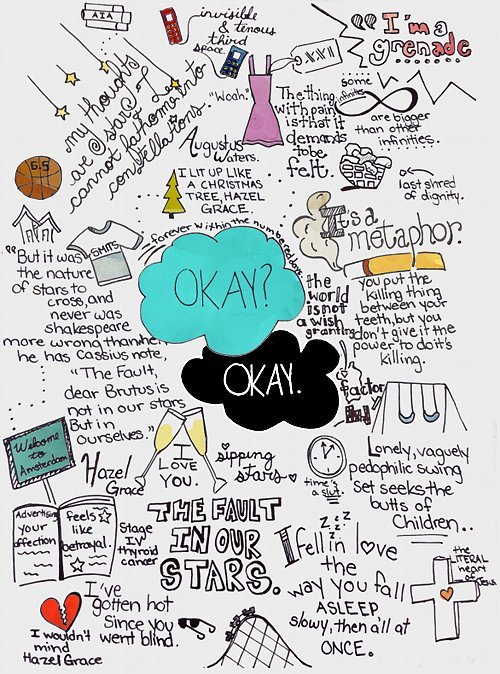 AIA
invisible
& tenous
third
space
"I'm a
grenade
my thoughts
are @ stars
cannot fathom into
constellations.
"Woah."
The thing
with pain
is that it
demands
to be
felt.
some
infinities
are bigger
than other
infinities.
Augustus
Waters.
6.5
I LIT UP LIKE
A CHRISTMAS
TREE, HAZEL
GRACE.
last shred
of dignity.
forever within the numbered days.
SMITS
It's a
metaphor.
"But it was
the nature
of stars to
cross, and
never was
shakespeare
more wrong than when
he has Cassius note,
"The Fault,
dear Brutus is
not in our stars
But in
ourselves."
OKAY?
OKAY.
the
world
is not
a wish
granting
factory
you put the
killing thing
between your
teeth, but you
don't give it the
power to do it's
killing.
Welcome
to
Amsterdam
Hazel
Grace
I
LOVE
YOU.
sipping
stars
time's
a slut.
Lonely, vaguely
pedophilic swing
set seeks the
butts of
Children..
Advertising
your
affection
feels
like
betrayal.
Stage
IV
thyroid
cancer
THE FAULT
IN OUR
STARS.
z z z z
I fell in love
the
way you fall
ASLEEP
slowy, then all at
ONCE.
the
LITERAL
heart
of
Jesus
I've
gotten hot
Since you
went blind.
I wouldn't
mind
Hazel Grace